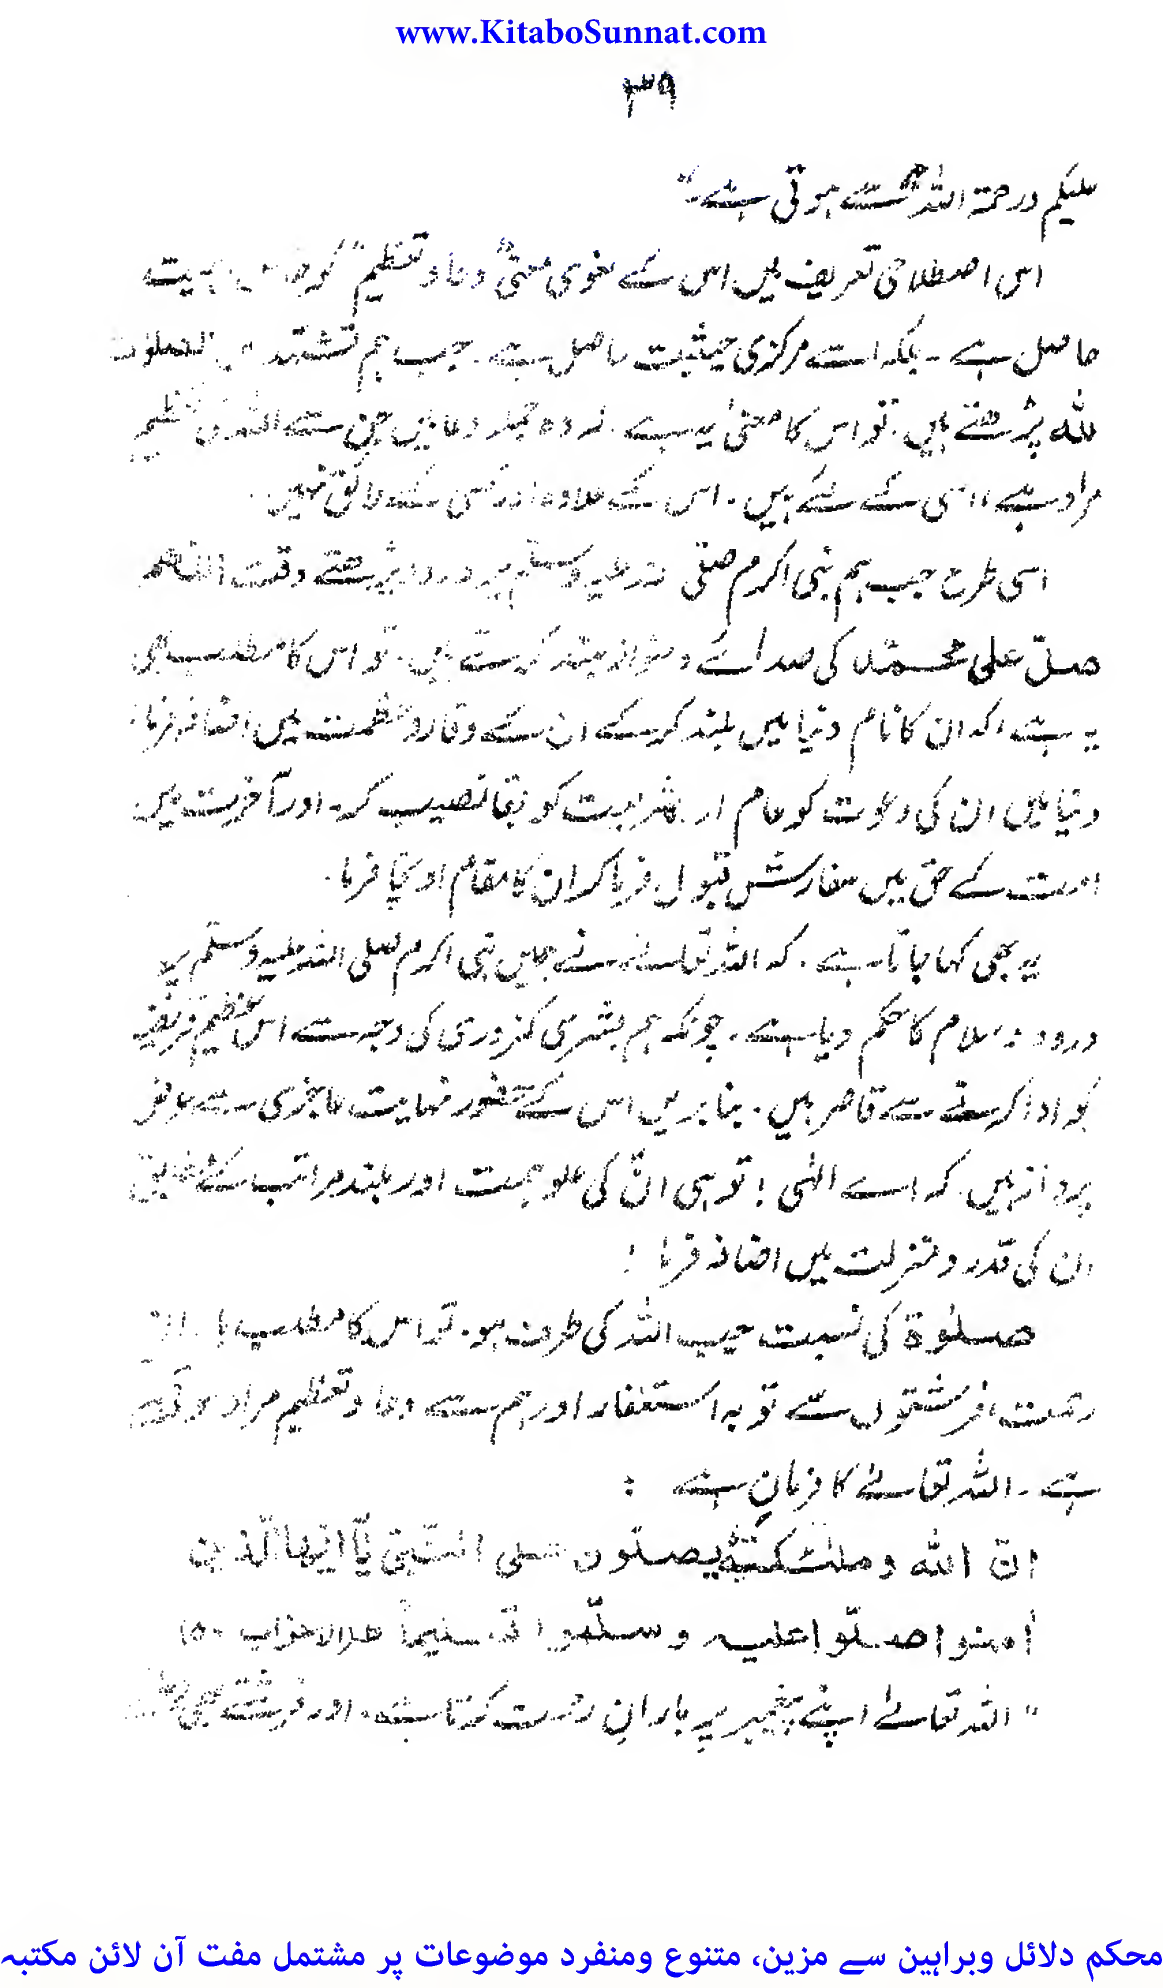 www.KitaboSunnat.com
۳۹
علیکم ورحمۃ اللہ سے ہوتی ہے۔"
اس اصطلاحی تعریف میں اس کے لغوی معنیٰ "دعا و تعظیم" کو خاص اہمیت
حاصل ہے۔ بلکہ اسے مرکزی حیثیت حاصل ہے۔ جب ہم تشہد میں الصلوات
للہ پڑھتے ہیں۔ تو اس کا معنیٰ یہ ہے۔ کہ وہ جملہ دعائیں جن سے اللہ کی تعظیم
مراد ہے، اسی کے لئے ہیں۔ اس کے علاوہ اور کسی کے لائق نہیں۔
اسی طرح جب ہم نبی اکرم صلی اللہ علیہ وسلم پر درود پڑھتے وقت اللھم
صلّ علی محمّد کی صدائے دلنواز بلند کرتے ہیں۔ تو اس کا مطلب بھی
یہ ہے کہ ان کا نام دنیا میں بلند کر کے ان کے وقار و عظمت میں اضافہ فرما۔
دنیا میں ان کی دعوت کو عام اور شریعت کو بقا نصیب کر۔ اور آخرت میں
امت کے حق میں سفارش قبول فرما کر ان کا مقام اونچا فرما۔
یہ بھی کہا جاتا ہے۔ کہ اللہ تعالےٰ نے ہمیں نبی اکرم صلی اللہ علیہ وسلم پر
درود و سلام کا حکم دیا ہے۔ چونکہ ہم بشری کمزوری کی وجہ سے اس عظیم فریضہ
کو ادا کرنے سے قاصر ہیں۔ بنا بریں اس کے حضور نہایت عاجزی سے عرض
پرداز ہیں کہ اے الٰہی! تو ہی انؐ کی علو ہمت اور بلند مراتب کے مطابق
ان کی قدر و منزلت میں اضافہ فرما!
صلوٰۃ کی نسبت جب اللہ کی طرف ہو۔ تو اس کا مطلب
رحمت، فرشتوں سے توبہ استغفار اور ہم سے دعا و تعظیم مراد ہوتی
ہے۔ اللہ تعالےٰ کا فرمان ہے:
انّ اللہ وملٰئکتہٗ یصلّون علی النّبی یٰآ ایّھا الّذین
اٰمنوا صلّوا علیہ وسلّموا تسلیماً
"اللہ تعالےٰ اپنے پیغمبر پر باران رحمت کرتا ہے۔ اور فرشتے بھی
محکم دلائل وبراہین سے مزین، متنوع ومنفرد موضوعات پر مشتمل مفت آن لائن مکتبہ